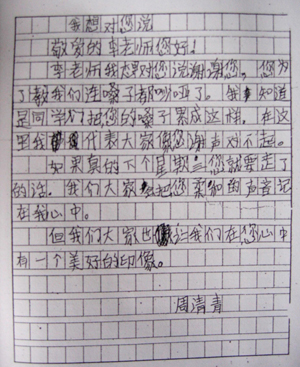 我想对您说
敬爱的李老师您好!
李老师我想对您说谢谢您,您为
了教我们连嗓子都哑了。我知道
是同学们把您的嗓子累成这样。在这
里我代表大家像您谢声对不起。
如果真的下个星期三您就要走了
的话。我们大家把您亲和的声音记
在我心中。
但我们大家也让我们在您心中
有一个美好的印像。
周清青